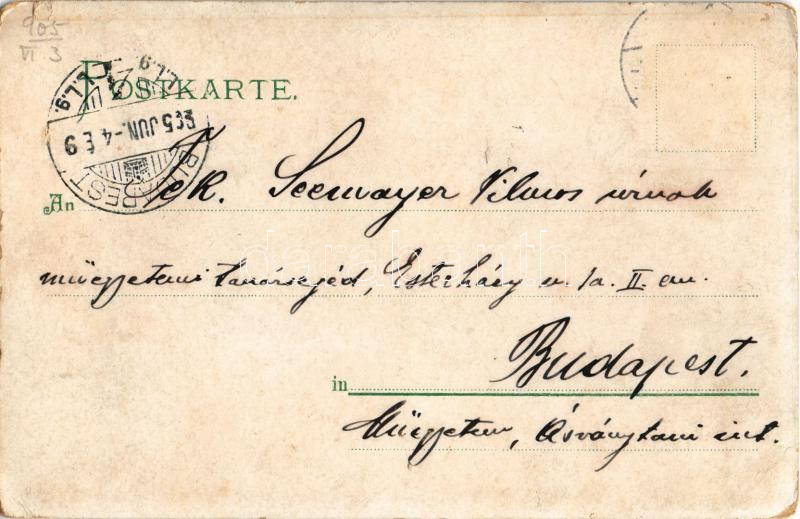 905
VI 3
POSTKARTE.
905 JUN. -4 É 9
BUDAPEST
An Tek. Seemayer Vilmos úrnak
műegyetemi tanársegéd, Esterházy u. 1a. II. em.
in Budapest.
Műegyetem, Ásványtani int.
darabanth